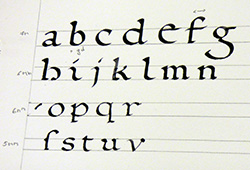 a b c d e f g
h i j k l m n
o p q r
s t u v
5mm